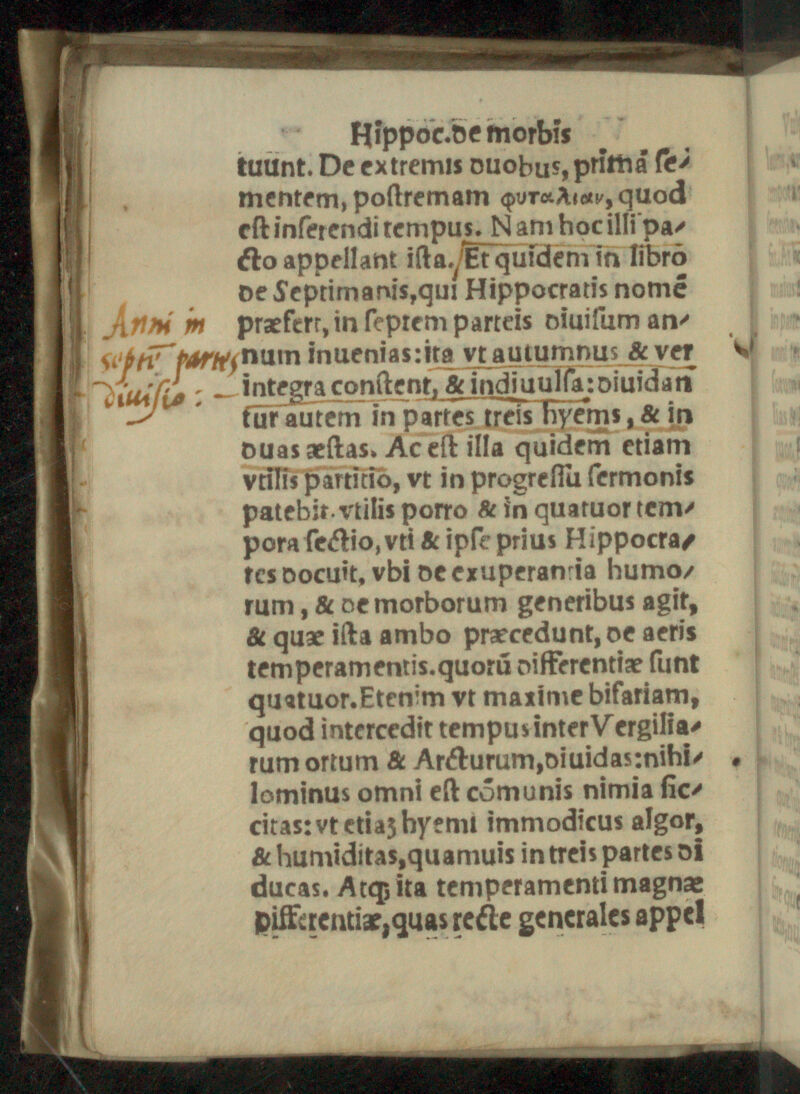 Hippoc.de morbis
tuunt. De extremis duobus, primā ſe-
mentem, poſtremam φυταλιαν, quod
eſt inſerendi tempus. Nam hoc illi pa-
cto appellant iſta. Et quidem in libro
de Septimanis, qui Hippocratis nomē
Anni in
præfert, in ſeptem parteis diuiſum an-
septē partes
num inuenias: ita vt autumnus & ver
diuisio : -
integra conſtent, & indiuulſa: diuidan
tur autem in partes treis hyems, & in
duas æſtas. Ac eſt illa quidem etiam
vtilis partitio, vt in progreſſu ſermonis
patebit. vtilis porro & in quatuor tem-
pora ſectio, vti & ipſe prius Hippocra-
tes docuit, vbi de exuperantia humo-
rum, & de morborum generibus agit,
& quæ iſta ambo præcedunt, de aeris
temperamentis. quorū differentiæ ſunt
quatuor. Etenim vt maxime bifariam,
quod intercedit tempus inter Vergilia-
rum ortum & Arcturum, diuidas: nihi-
lominus omni eſt cōmunis nimia ſic-
citas: vt etiaꝫ hyemi immodicus algor,
& humiditas, quamuis in treis partes di
ducas. Atqꝫ ita temperamenti magnæ
differentiæ, quas recte generales appel